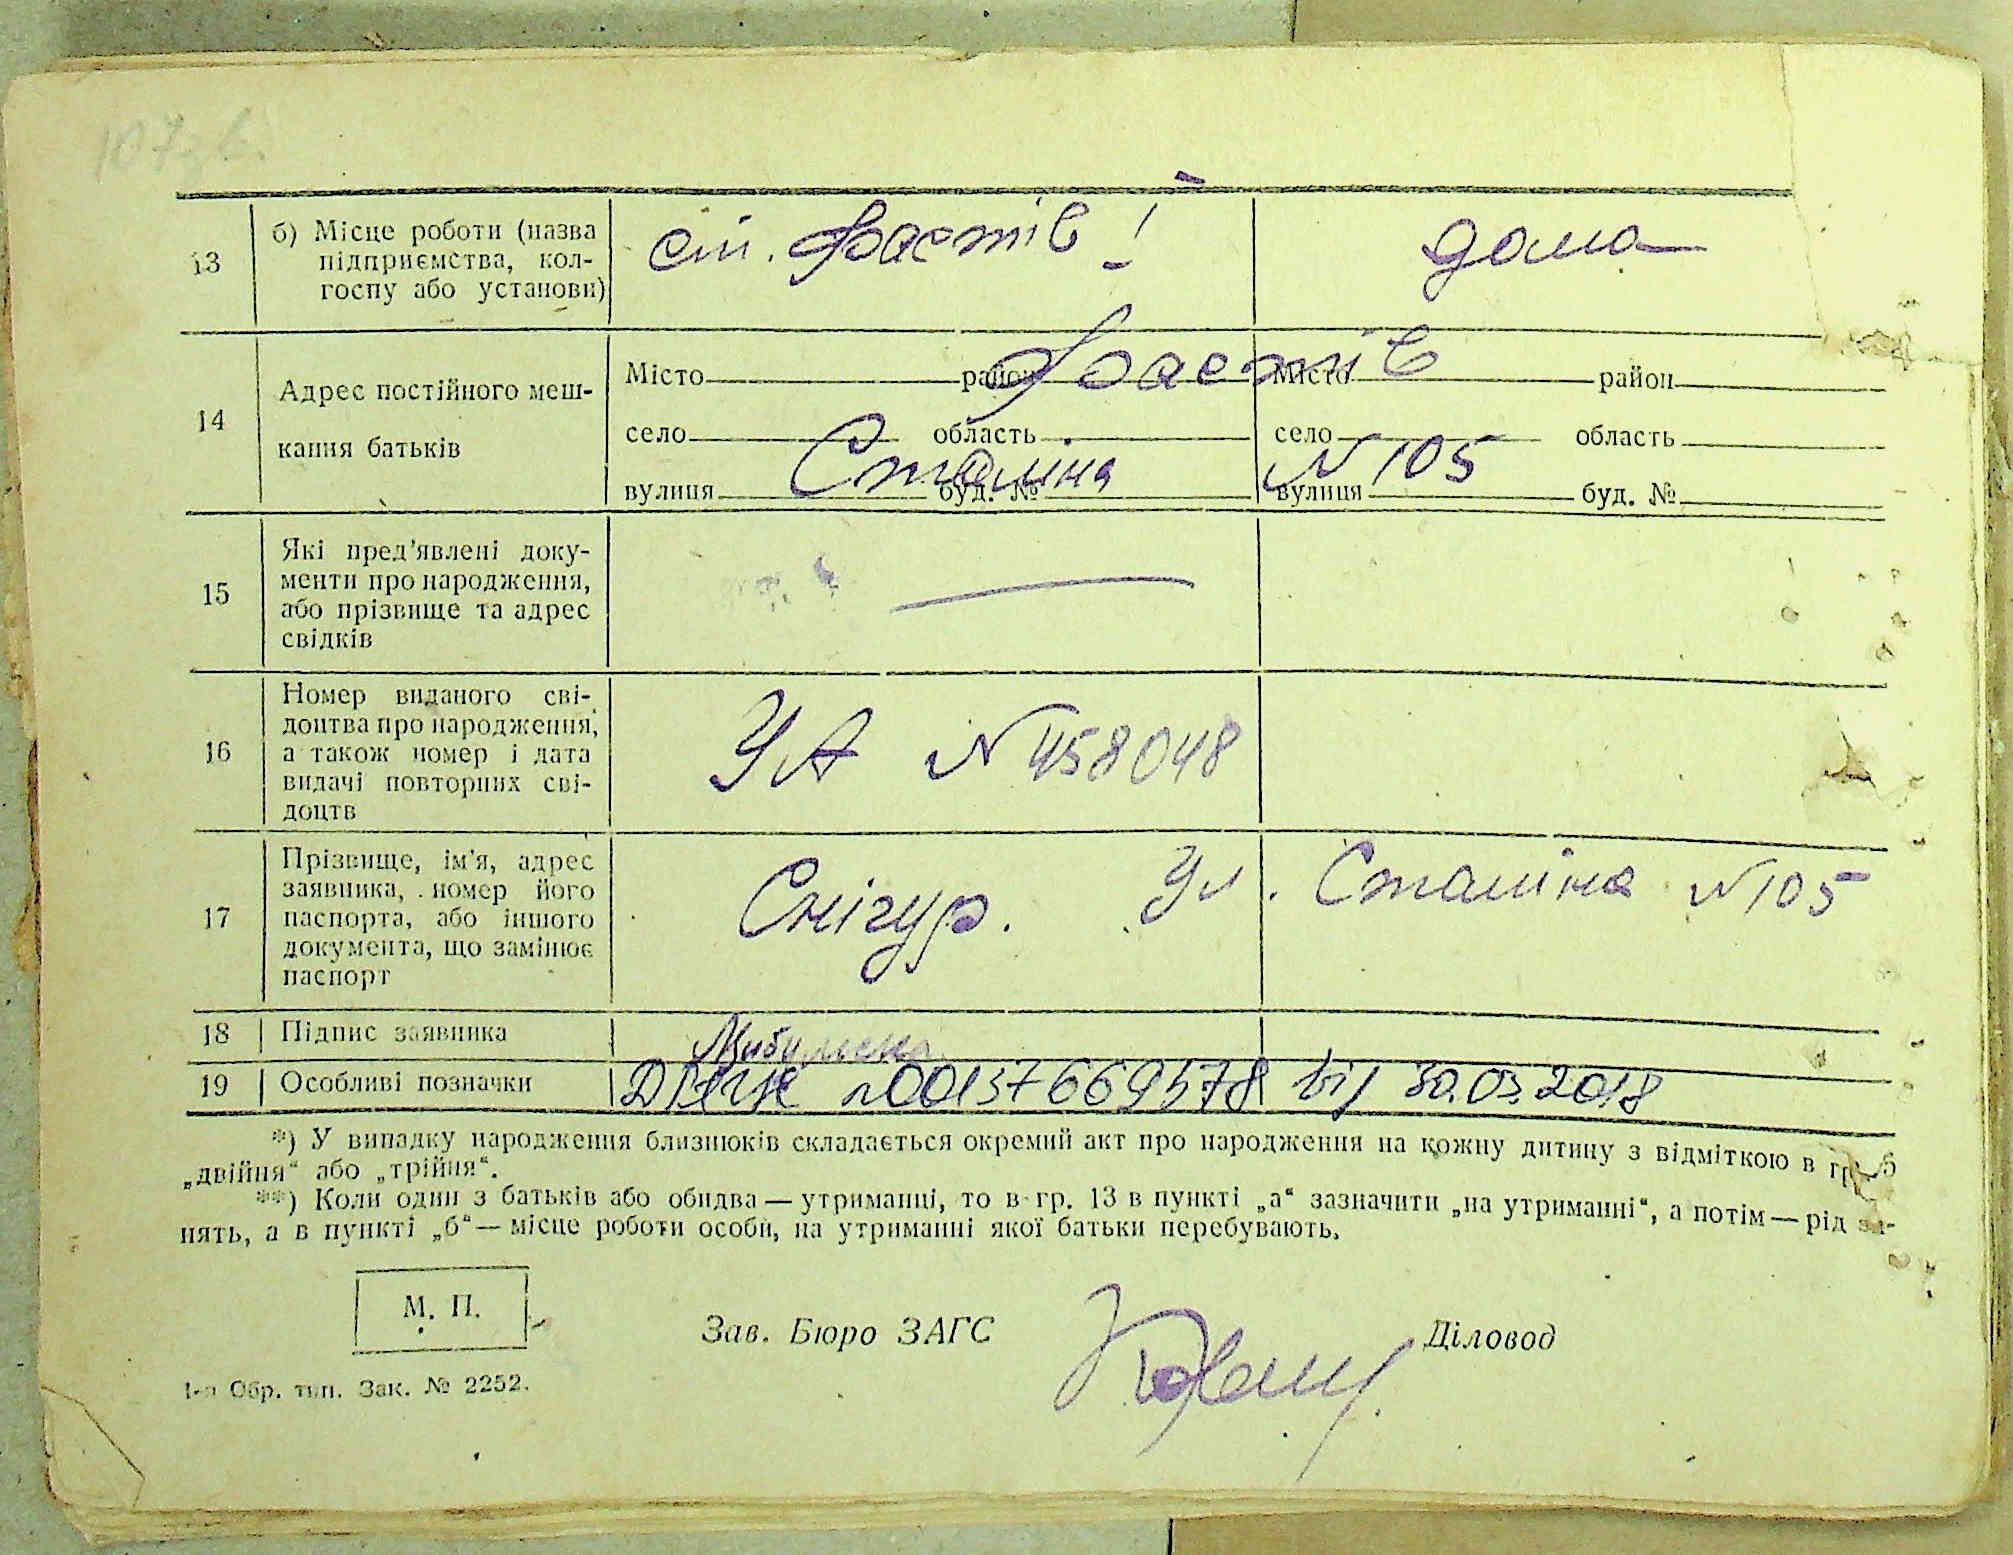 107зв.
13
б) Місце роботи (назва
підприємства, кол-
госпу або установи)
ст. Фастів
дома
14
Адрес постійного меш-
кання батьків
Місто район Місто район
Фастів
село область село область
Сталіна N 105
вулиця буд. № вулиця буд. №
15
Які пред’явлені доку-
менти про народження,
або прізвище та адрес
свідків
16
Номер виданого сві-
доцтва про народження,
а також номер і дата
видачі повторних сві-
доцтв
УА N 458048
17
Прізвище, ім’я, адрес
заявника, номер його
паспорта, або іншого
документа, що замінює
паспорт
Снігур. Ул. Сталіна N 105
18 Підпис заявника
19 Особливі позначки
ДРАЦС 00137669578 від 30.03.2018
*) У випадку народження близнюків складається окремий акт про народження на кожну дитину з відміткою в гр. 5
„двійня“ або „трійня“.
**) Коли один з батьків або обидва — утриманці, то в гр. 13 в пункті „а“ зазначити „на утриманні“, а потім — рід за-
нять, а в пункті „б“ — місце роботи особи, на утриманні якої батьки перебувають.
М. П.
Зав. Бюро ЗАГС
Діловод
1-а Обр. тип. Зак. № 2252.